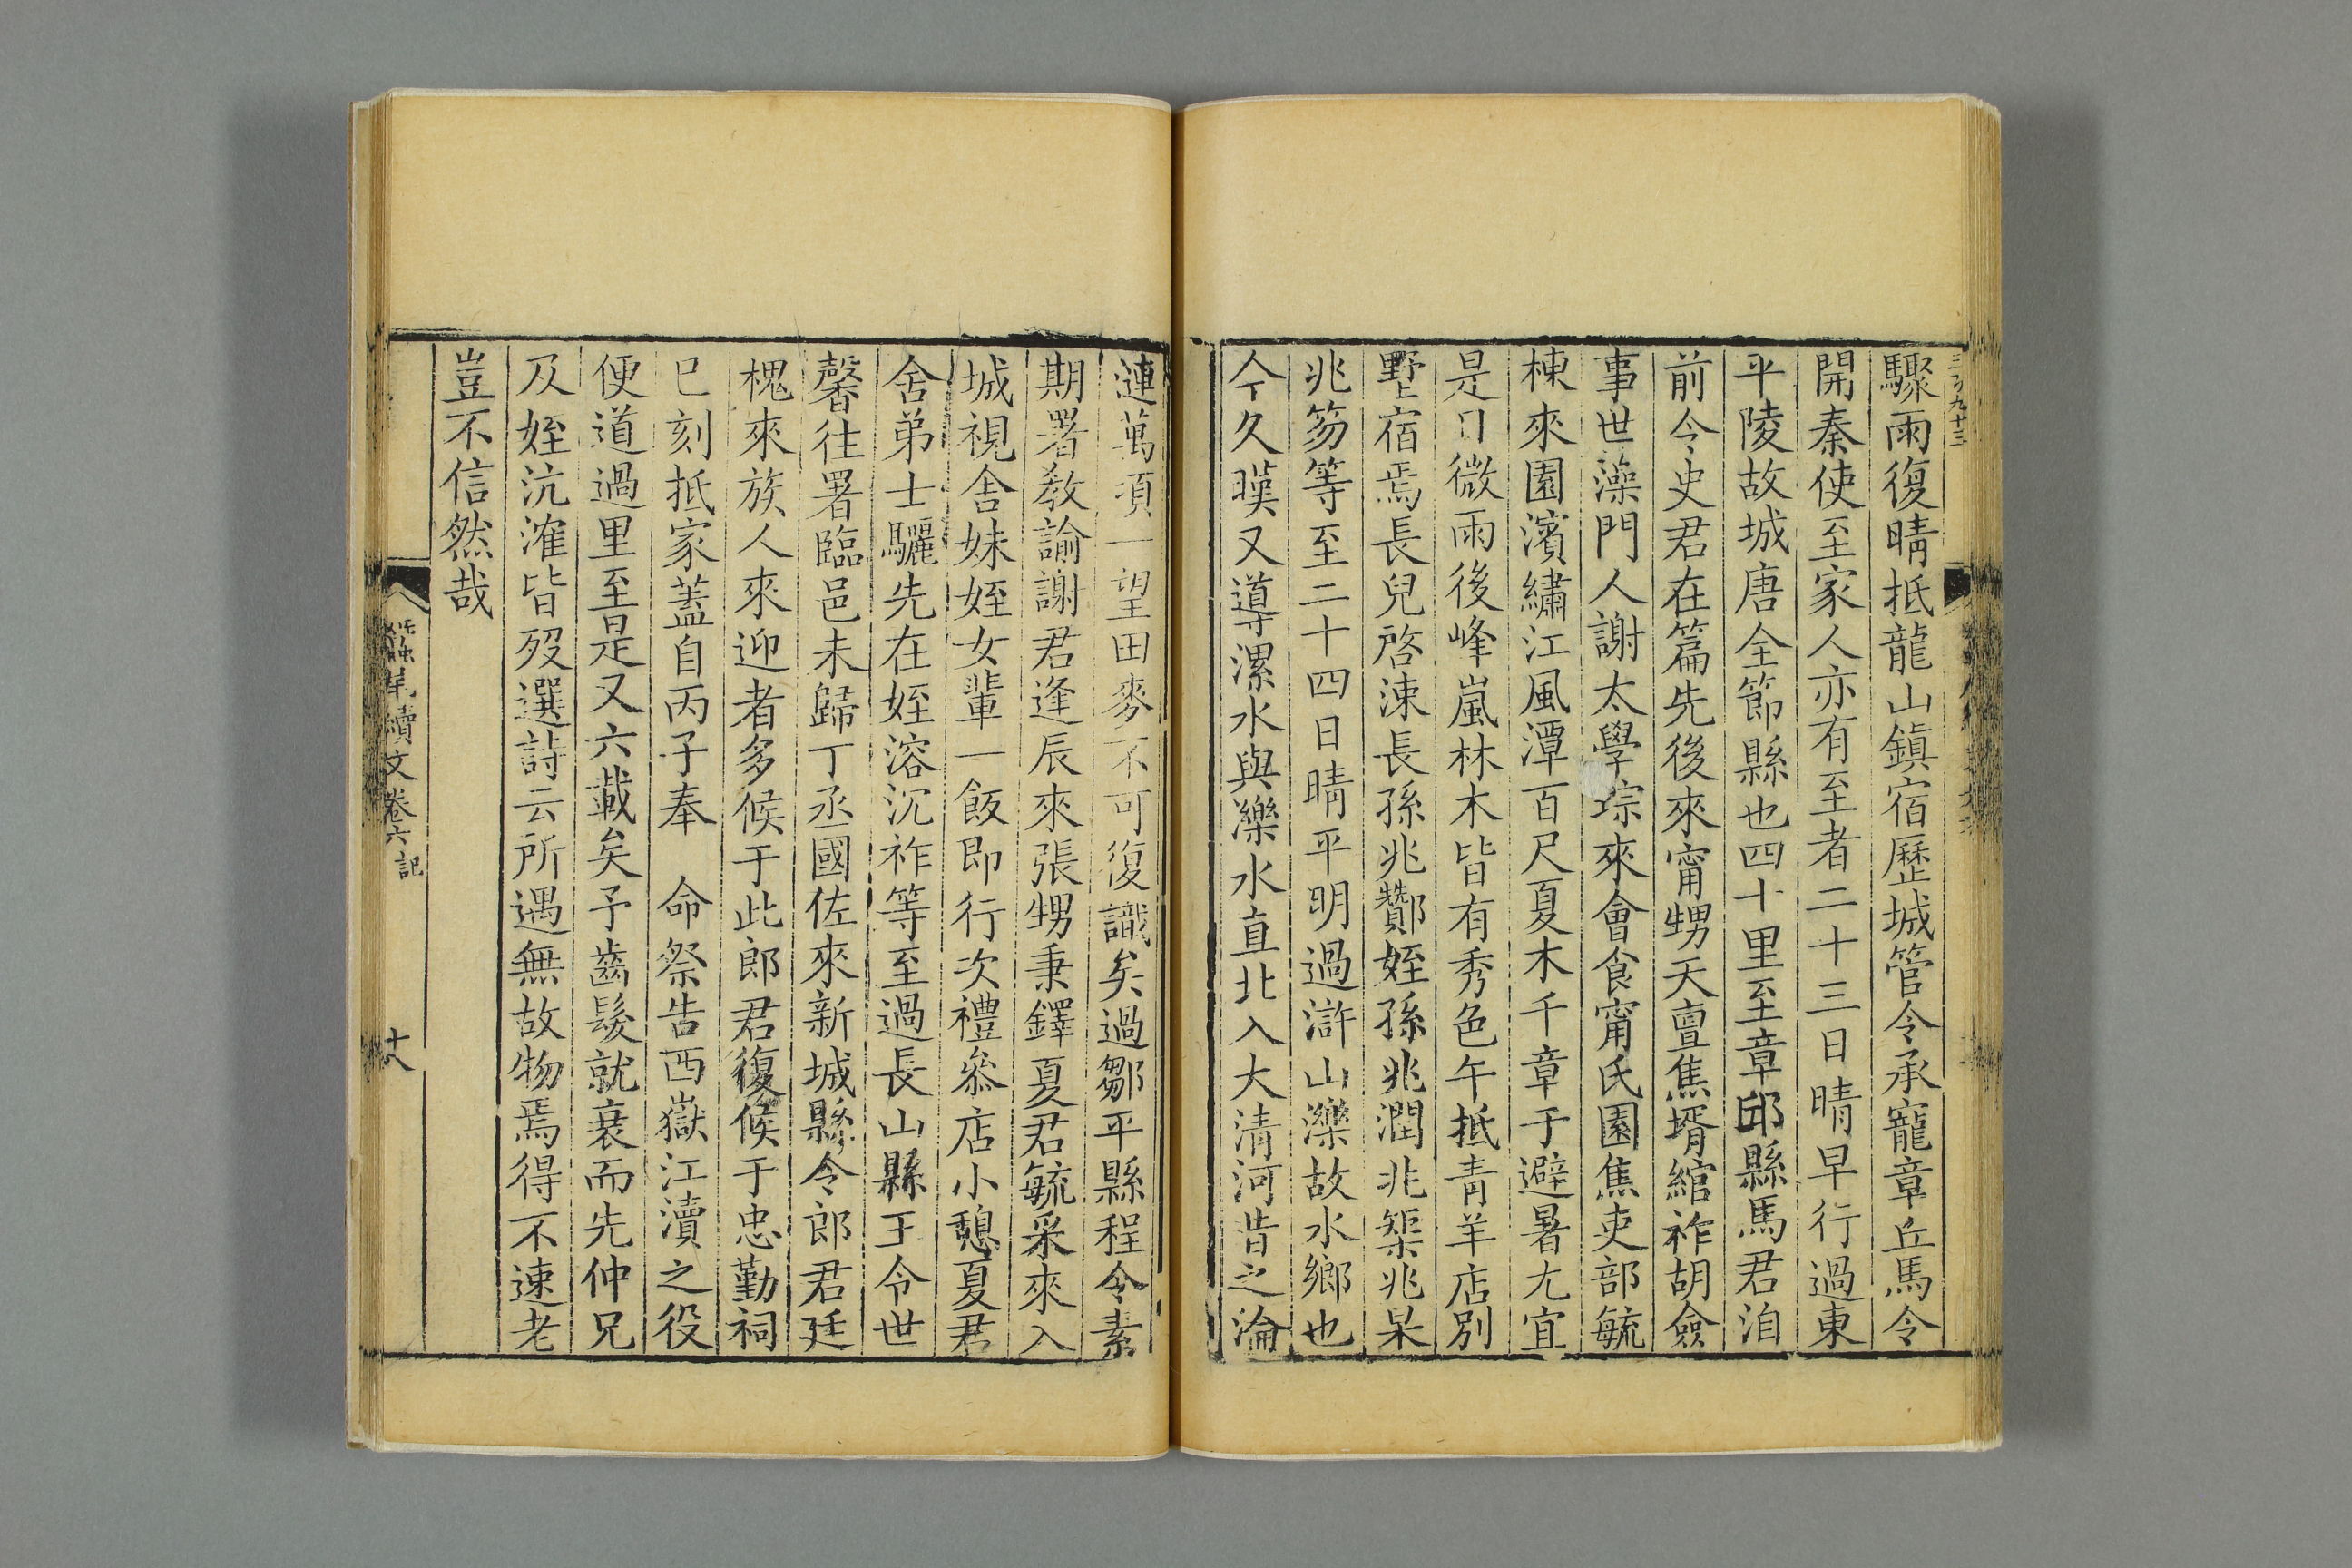 三百九十三
驟雨復晴抵龍山鎮宿歷城管令承寵章丘馬令
開秦使至家人亦有至者二十三日晴早行過東
平陵故城唐全節縣也四十里至章邱縣馬君洎
前令史君在篇先後來甯甥天亶焦壻綰祚胡僉
事世藻門人謝太學琮來會食甯氏園焦吏部毓
棟來園濱繡江風潭百尺夏木千章于避暑尤宜
是日微雨後峰嵐林木皆有秀色午抵青羊店別
墅宿焉長兒啓涑長孫兆酇姪孫兆潤兆榘兆杲
兆笏等至二十四日晴平明過滸山濼故水鄉也
今久暵又導漯水與濼水直北入大清河昔之淪
漣萬頃一望田麥不可復識矣過鄒平縣程令素
期署教諭謝君逢辰來張甥秉鐸夏君毓采來入
城視舍妹姪女輩一飯即行次禮叅店小憩夏君
舍弟士驪先在姪溶沉祚等至過長山縣王令世
馨往署臨邑未歸丁丞國佐來新城縣令郎君廷
槐來族人來迎者多候于此郎君復候于忠勤祠
巳刻抵家蓋自丙子奉　命祭告西嶽江瀆之役
便道過里至是又六載矣予齒髮就衰而先仲兄
及姪沆漼皆歿選詩云所遇無故物焉得不速老
豈不信然哉
蠶尾續文卷六 記
十八